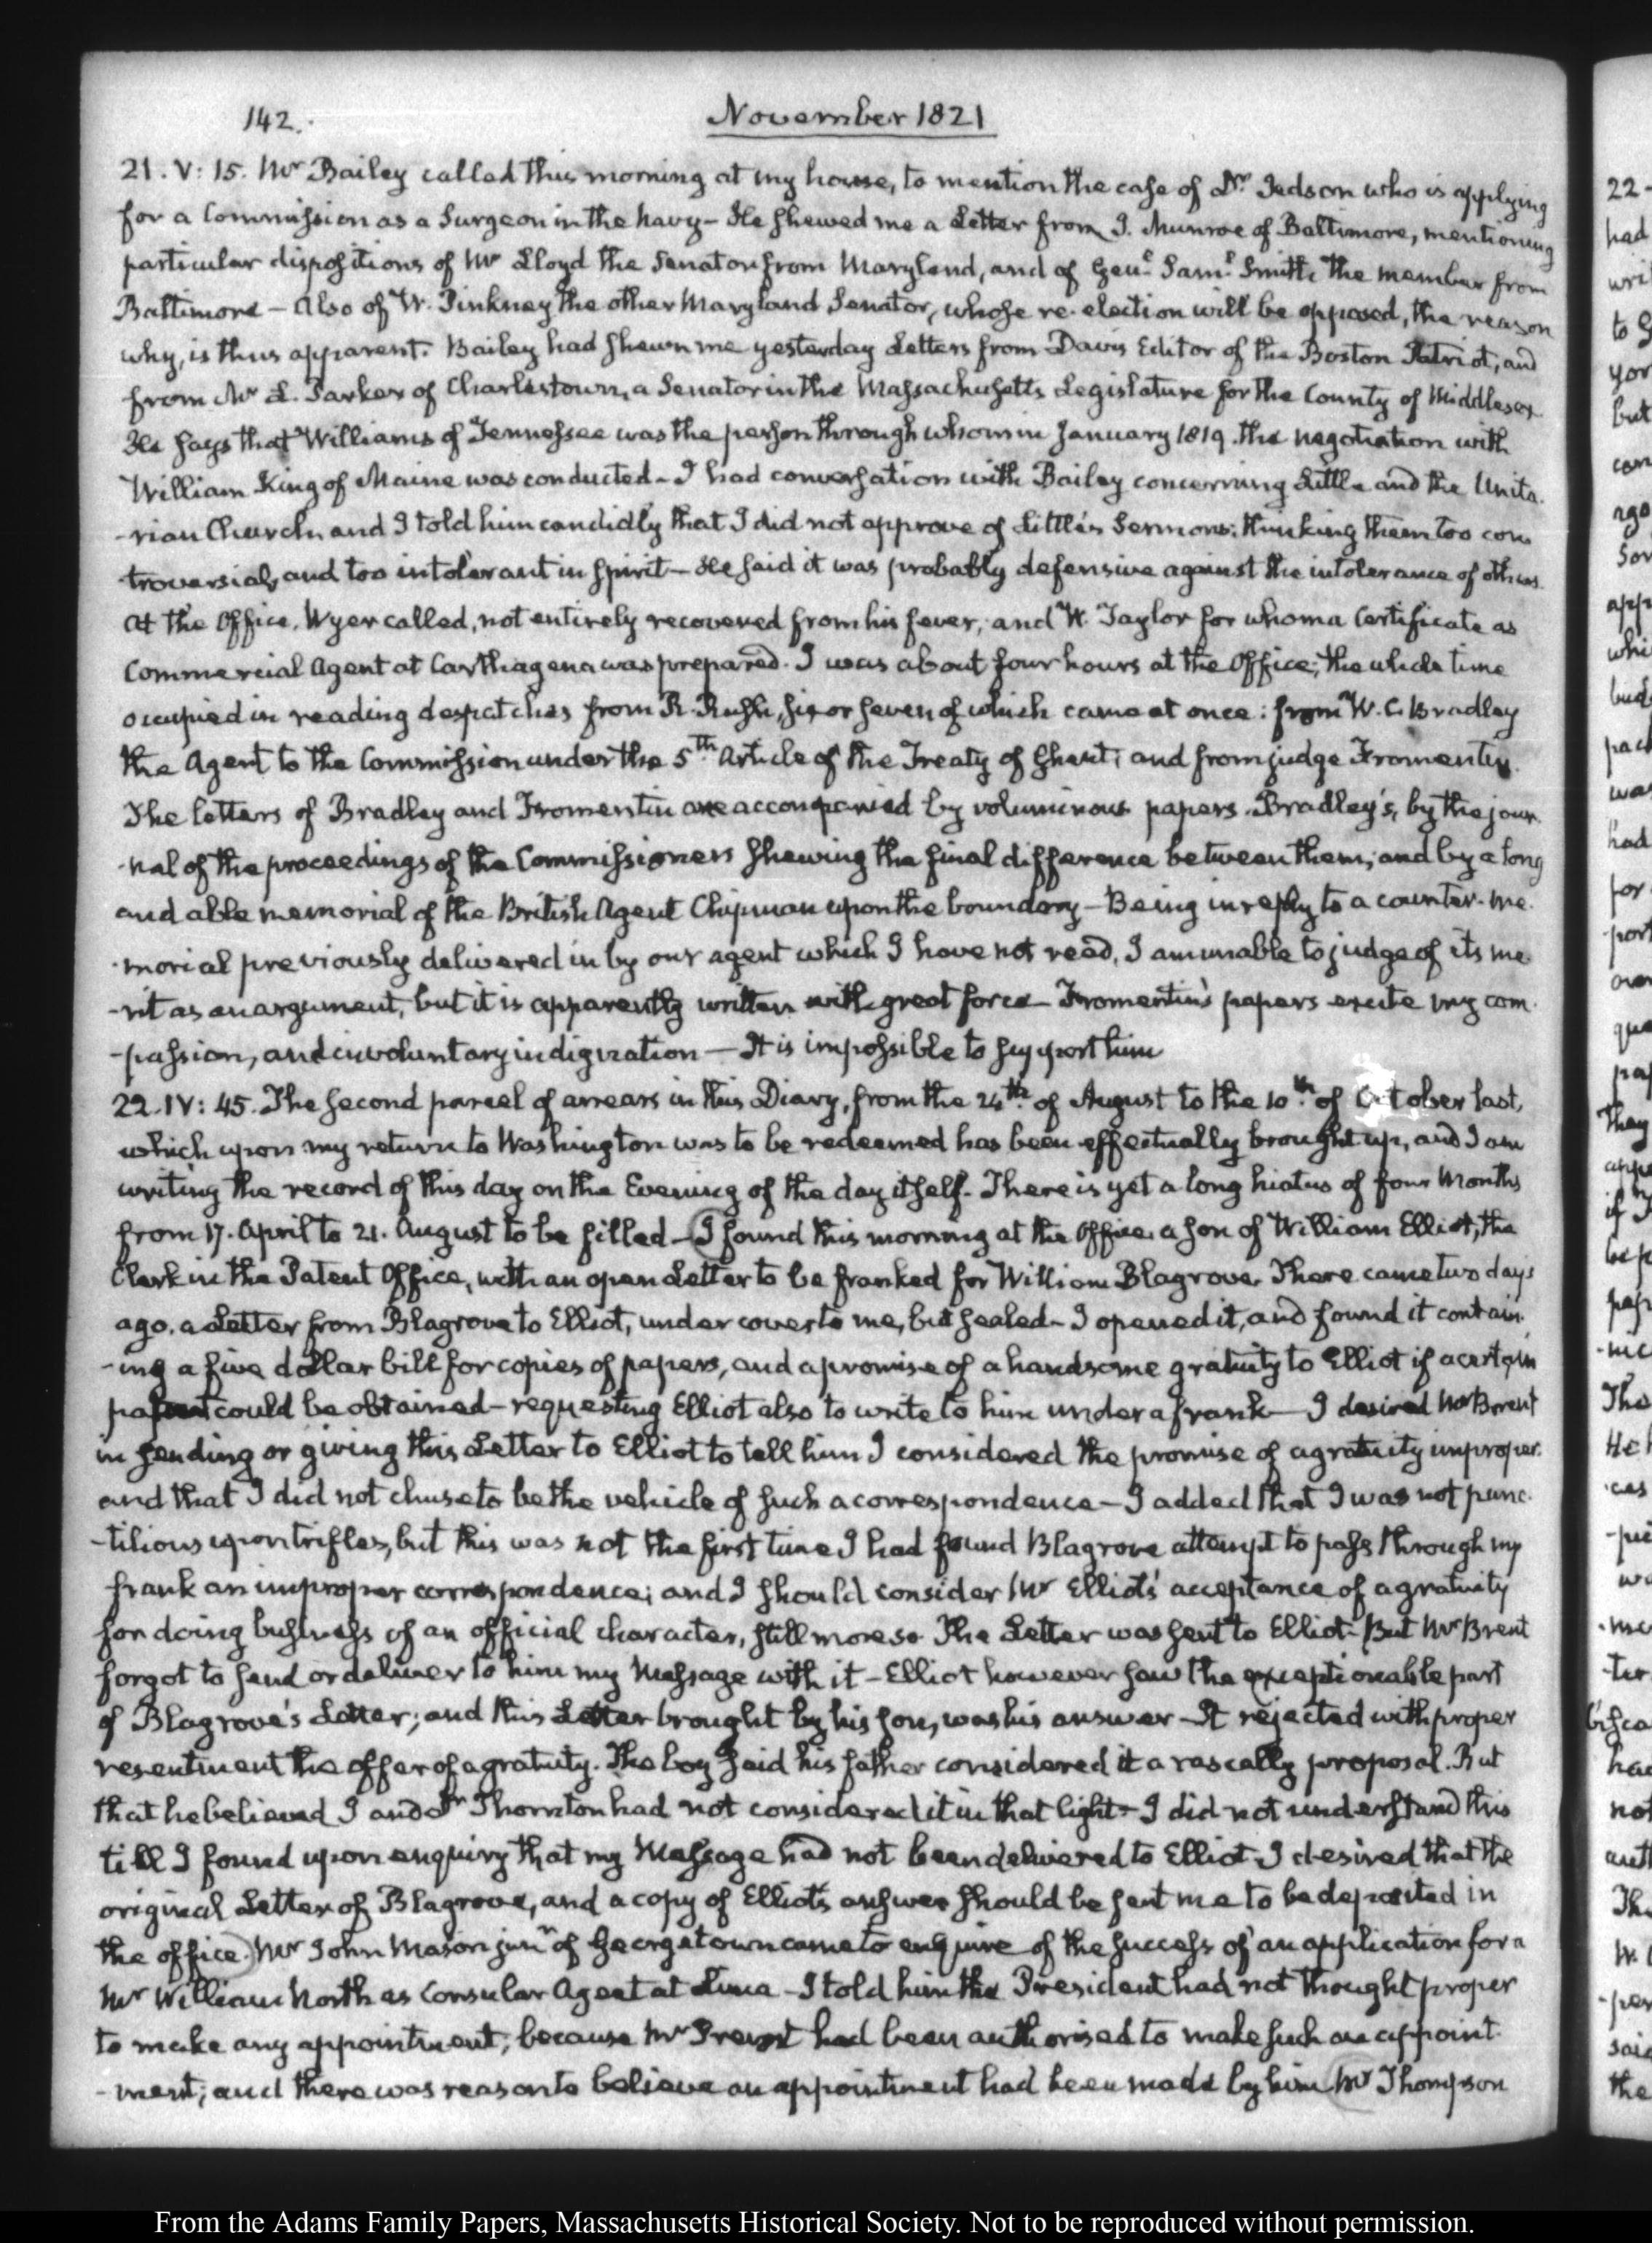 142.
November 1821
21. V: 15. Mr Bailey called this morning at my house, to mention the case of Dr Judson who is applying
for a Commission as a Surgeon in the Navy – He shewed me a Letter from I. Munroe of Baltimore, mentioning
particular dispositions of Mr Lloyd the Senator from Maryland, and of Genl Saml Smith the member from
Baltimore – Also of W. Pinkney the other Maryland Senator, whose re-election will be opposed, the reason
why, is thus apparent. Bailey had shewn me yesterday Letters from Davis Editor of the Boston Patriot, and
from Mr L. Parker of Charlestown, a Senator in the Massachusetts Legislature for the County of Middlesex
He says that Williams of Tennessee was the person through whom in January 1819. the negotiation with
William King of Maine was conducted – I had conversation with Bailey concerning Little and the Unita-
-rian Church, and I told him candidly that I did not approve of Little's Sermons: thinking them too con
troversial, and too intolerant in spirit – He said it was probably defensive against the intolerance of others.
At the Office, Wyer called, not entirely recovered from his fever, and W. Taylor for whom a Certificate as
Commercial Agent at Carthagena was prepared. I was about four hours at the Office; the whole time
occupied in reading despatches from R. Rush, six or seven of which came at once: from W. C. Bradley
the Agent to the Commission under the 5th Article of the Treaty of Ghent; and from judge Fromentin.
The letters of Bradley and Fromentin are accompanied by voluminous papers. Bradley's, by the jour-
-nal of the proceedings of the Commissioners shewing the final difference between them; and by a long
and able memorial of the British Agent Chipman upon the boundary – Being in reply to a counter-me-
-morial previously delivered in by our agent which I have not read, I am unable to judge of its me-
-rit as an argument, but it is apparently written with great force – Fromentin's papers excite my com-
-passion, and involuntary indignation – It is impossible to support him
22. IV: 45. The second parcel of arrears in this Diary, from the 24th of August to the 10th of October last,
which upon my return to Washington was to be redeemed has been effectually brought up, and I am
writing the record of this day on the Evening of the day itself. There is yet a long hiatus of four Months
from 17. April to 21. August to be filled – I found this morning at the Office a son of William Elliot, the
Clerk in the Patent Office, with an open Letter to be franked for William Blagrove. There came two days
ago, a Letter from Blagrove to Elliot, under cover to me, but sealed – I opened it, and found it contain-
-ing a five dollar bill for copies of papers, and a promise of a handsome gratuity to Elliot if a certain
could be obtained – requesting Elliot also to write to him under a frank – I desired Mr Brent
in sending or giving this Letter to Elliot to tell him I considered the promise of a gratuity improper.
and that I did not chuse to be the vehicle of such a correspondence – I added that I was not punc-
-tilious upon trifles, but this was not the first time I had found Blagrove attempt to pass through my
frank an improper correspondence; and I should consider Mr Elliot's acceptance of a gratuity
for doing business of an official character, still more so. The Letter was sent to Elliot – But Mr Brent
forgot to send or deliver to him my Message with it – Elliot however saw the exceptionable part
of Blagrove's Letter; and this Letter brought by his son, was his answer – It rejected with proper
resentment the offer of a gratuity. The boy said his father considered it a rascally proposal. But
that he believed I and Dr Thornton had not considered it in that light – I did not understand this
till I found upon enquiry that my Message had not been delivered to Elliot – I desired that the
original Letter of Blagrove, and a copy of Elliot's answer should be sent me to be deposited in
the office. Mr John Mason junr of Georgetown came to enquire of the success of an application for a
Mr William North as Consular Agent at Lima – I told him the President had not thought proper
to make any appointment; because Mr Prevost had been authorised to make such an appoint-
-ment; and there was reason to believe an appointment had been made by him Mr Thompson
22
had
to
but
had
for
The
had
not
Th
the
From the Adams Family Papers, Massachusetts Historical Society. Not to be reproduced without permission.